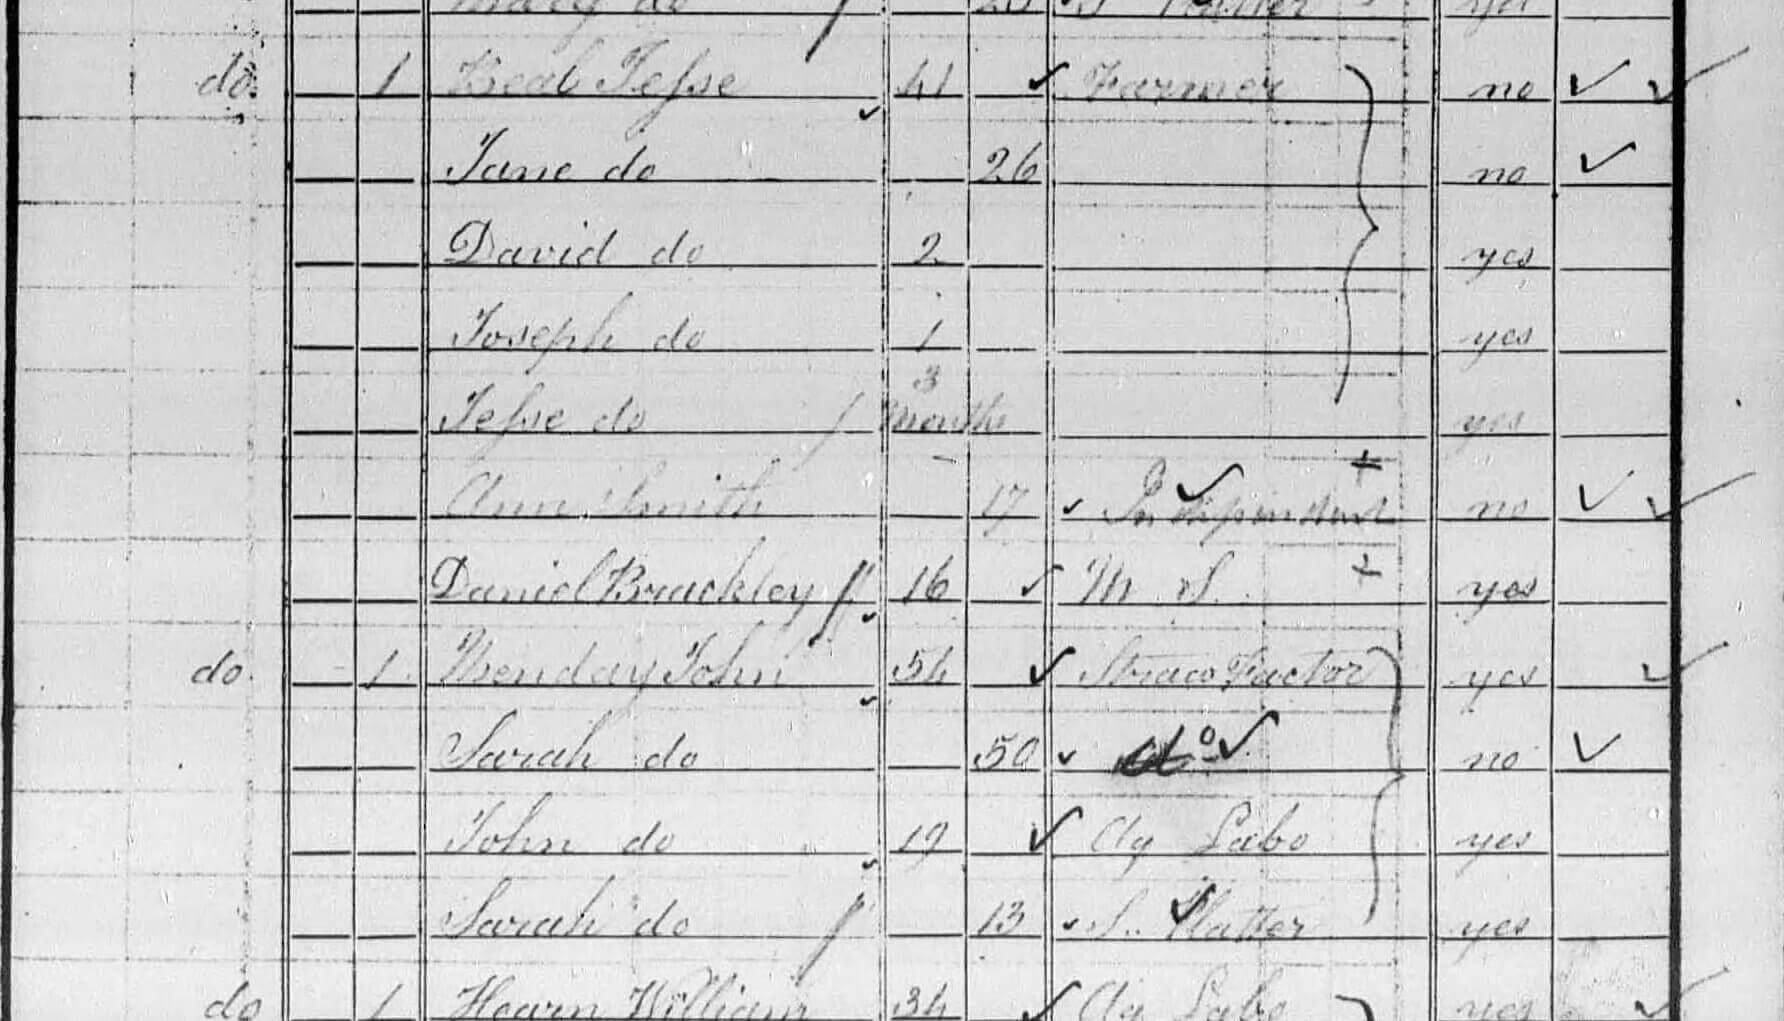 Mary do 20 S Platter yes
do 1 Beal Jesse 41 Farmer no
Jane do 26 no
David do 2 yes
Joseph do 1 yes
3
Jesse do Months yes
Ann Smith 17 Independent no
Daniel Brackley 16 M S. yes
do. 1 John 54 Straw Factor yes
Sarah do 50 do no
John do 19 Ag Labo yes
Sarah do 13 S. Platter yes
do 1 Hearn William 34 Ag Labo yes